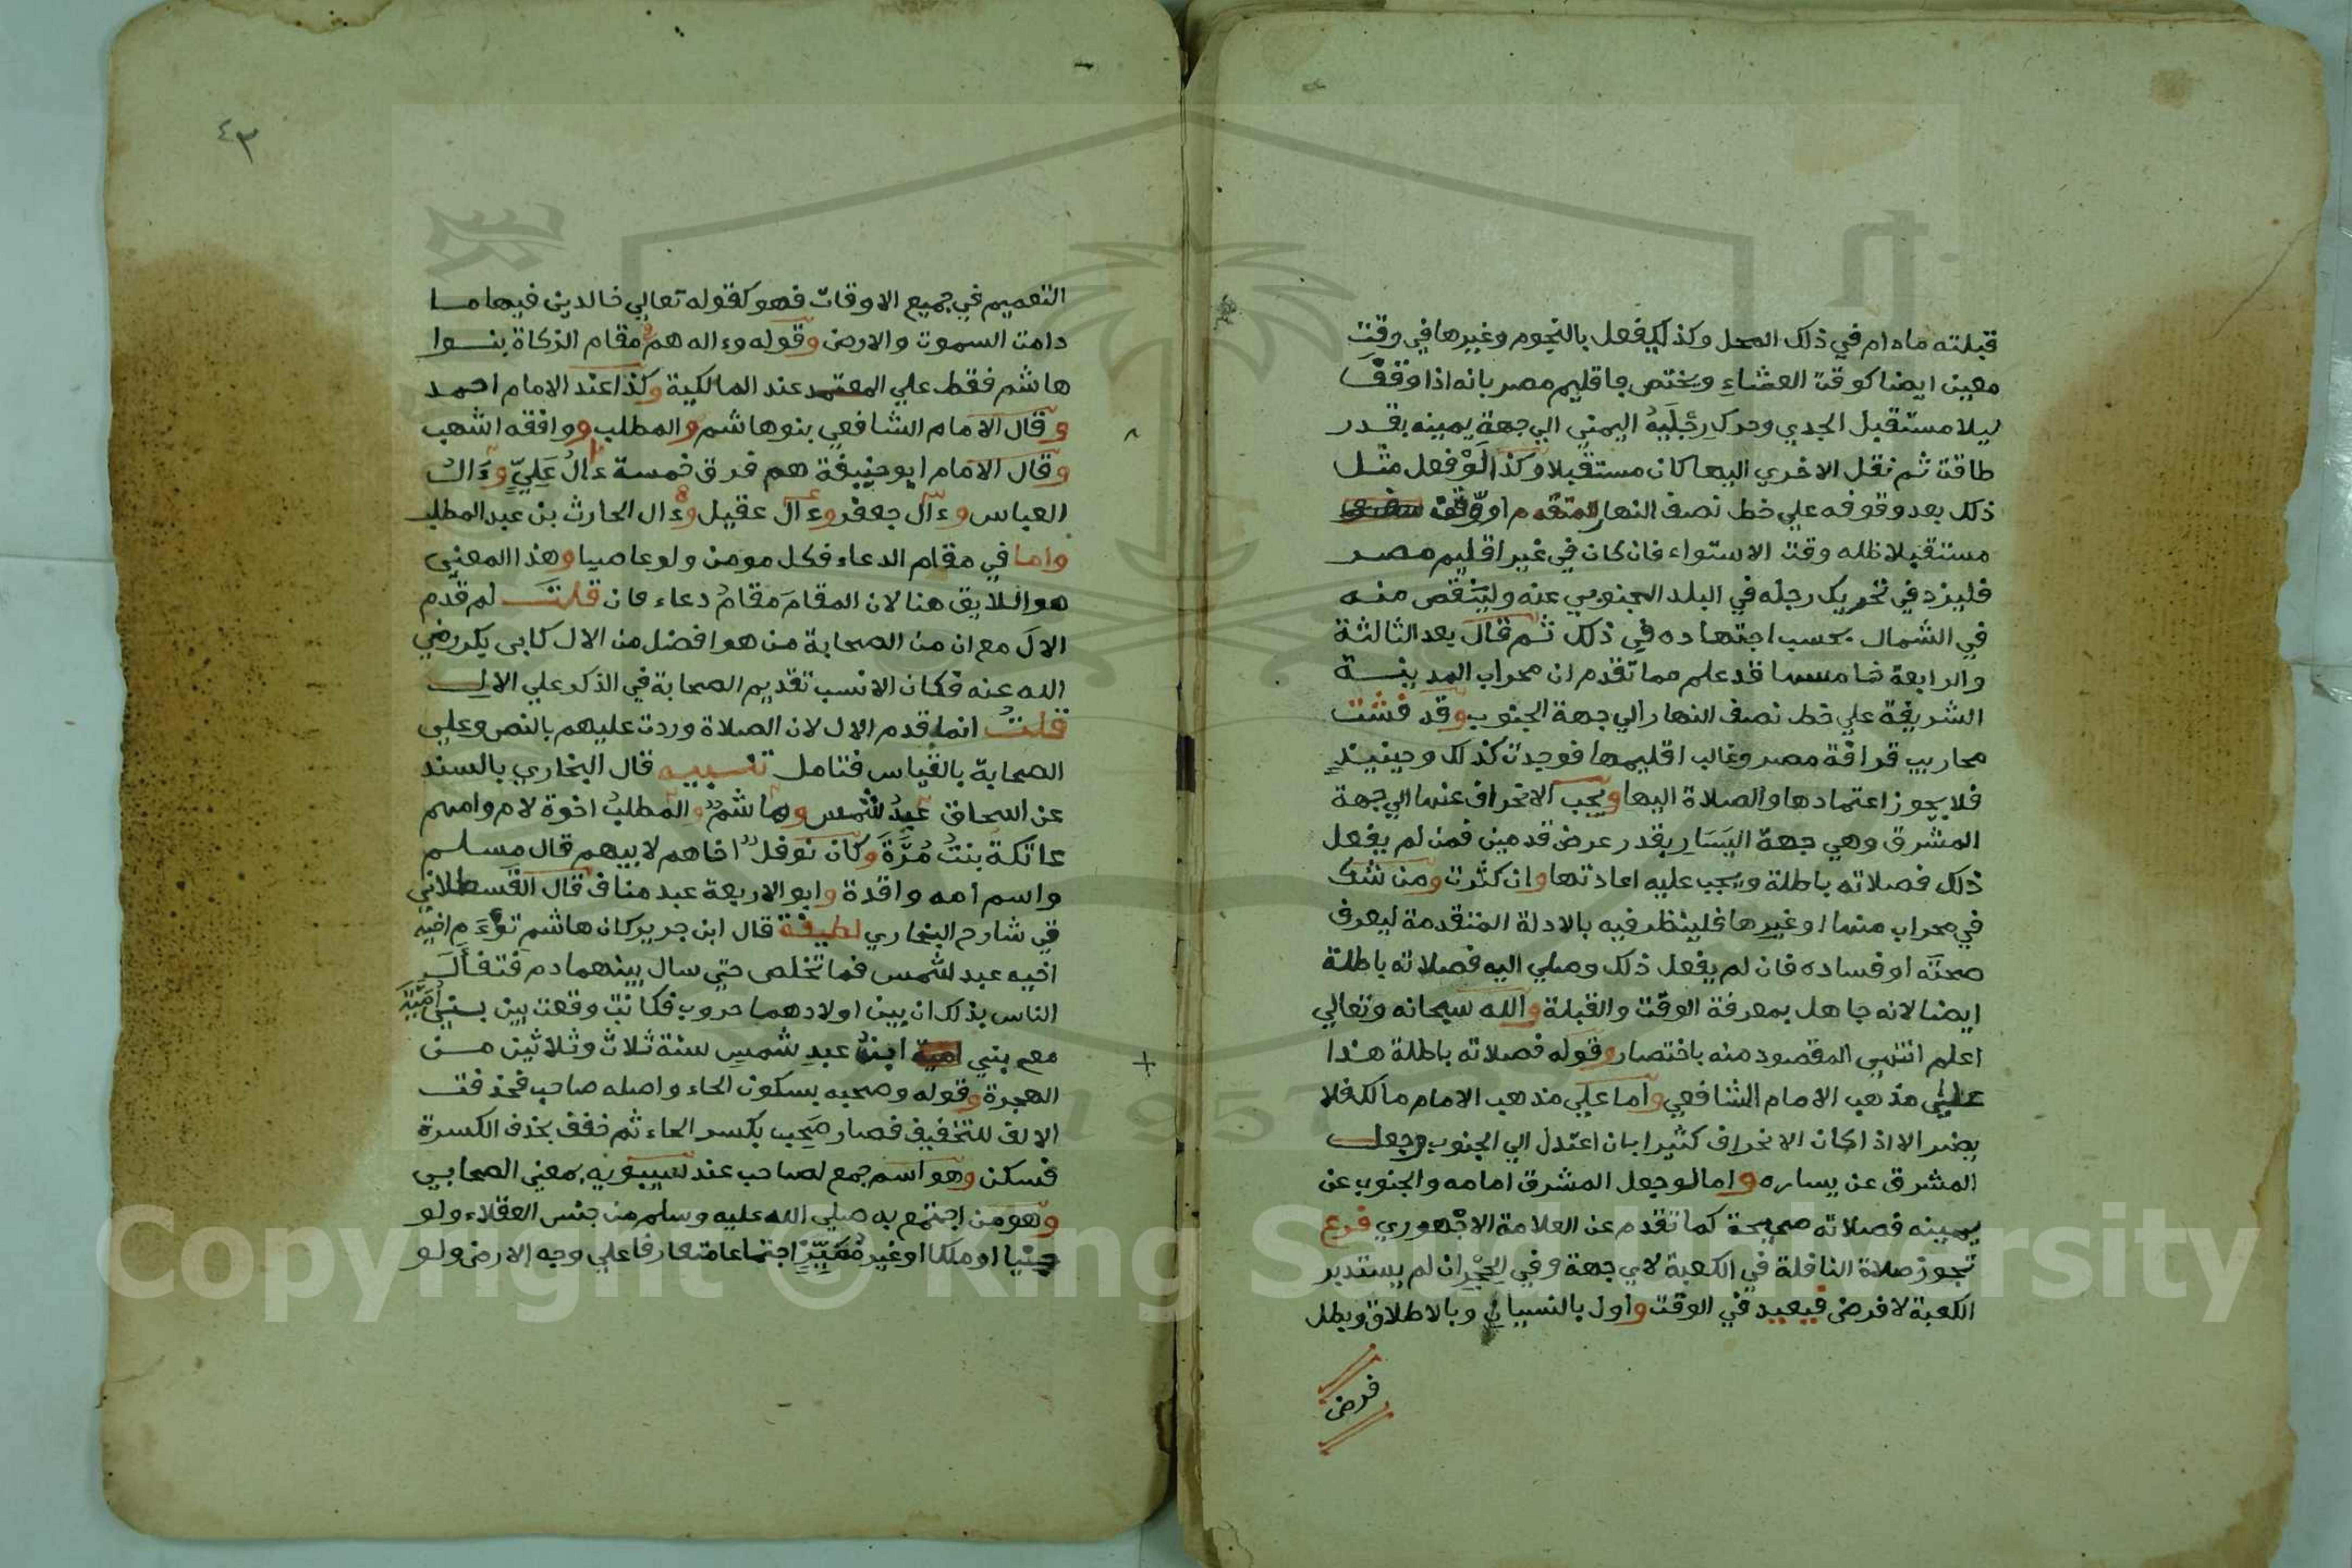 قبلته مادام في ذلك المحل وكذلك يفعل بالنجوم وغيرها في وقت
معين ايضا كوقت العشاء ويختص باقليم مصر بانه اذا وقف
ليلا مستقبل الجدي وحرك رجليه اليمني الي جهة يمينه بقدر
طاقته ثم نقل الاخري اليها كان مستقبلا وكذا لو فعل مثل
ذلك بعد وقوفه علي خط نصف النهار المتقدم او وقف
مستقبلا ظله وقت الاستواء فان كان في غير اقليم مصر
فليزد في تحريك رجله في البلد الجنوبي عنه ولينقص منه
في الشمال بحسب اجتهاده في ذلك ثم قال بعد الثالثة
والرابعة خامسا قد علم مما تقدم ان محراب المدينة
الشريفة علي خط نصف النهار الي جهة الجنوب وقد فشت
محاريب قرافة مصر وغالب اقليمها فوجدت كذلك وحينيذ
فلا يجوز اعتمادها والصلاة اليها ويجب الانحراف عنها الي جهة
المشرق وهي جهة اليسار بقدر عرض قدمين فمن لم يفعل
ذلك فصلاته باطلة ويجب عليه اعادتها وان كثرت ومن شك
في محراب منها او غيرها فلينظر فيه بالادلة المتقدمة ليعرف
صحته او فساده فان لم يفعل ذلك وصلي اليه فصلاته باطلة
ايضا لانه جاهل بمعرفة الوقت والقبلة والله سبحانه وتعالي
اعلم انتهي المقصود منه باختصار وقوله فصلاته باطلة هذا
علي مذهب الامام الشافعي واما علي مذهب الامام مالك فلا
يضر الا اذا كان الانحراف كثيرا بان اعتدل الي الجنوب وجعل
المشرق عن يساره واما لو جعل المشرق امامه والجنوب عن
يمينه فصلاته صحيحة كما تقدم عن العلامة الاجهوري فرع
تجوز صلاة النافلة في الكعبة لاي جهة وفي الحجر ان لم يستدبر
الكعبة لا فرض فيعيد في الوقت واول بالنسيان وبالاطلاق وبطل
فرض
٤٣
التعميم في جميع الاوقات فهو كقوله تعالي خالدين فيها ما
دامت السموت والارض وقوله وءاله هم في مقام الزكاة بنوا
هاشم فقط علي المعتمد عند المالكية وكذا عند الامام احمد
وقال الامام الشافعي بنو هاشم والمطلب ووافقه اشهب
وقال الامام ابو حنيفة هم فرق خمسة ءال علي وءال
العباس وءال جعفر وءال عقيل وءال الحارث بن عبد المطلب
واما في مقام الدعاء فكل مومن ولو عاصيا وهذا المعني
هو اللايق هنا لان المقام مقام دعاء فان قلت لم قدم
الال مع ان من الصحابة من هو افضل من الال كابي بكر رضي
الله عنه فكان الانسب تقديم الصحابة في الذكر علي الال
قلت انما قدم الال لان الصلاة وردت عليهم بالنص وعلي
الصحابة بالقياس فتامل تنبيه قال البخاري بالسند
عن اسحاق عبد شمس وهاشم والمطلب اخوة لام وامهم
عاتكة بنت مرة وكان نوفل اخاهم لابيهم قال مسلم
واسم امه واقدة وابو الاربعة عبد مناف قال القسطلاني
في شارح البخاري لطيفة قال ابن جرير كان هاشم توءم اخيه
اخيه عبد شمس فما تخلص حتي سال بينهما دم فتفأل
الناس بذلك ان يبن اولادهما حروب فكانت وقعت بين بني أمية
مع بني امية ابن عبد شمس سنة ثلاث وثلاثين من
الهجرة وقوله وصحبه بسكون الحاء واصله صاحب فحذفت
الالف للتخفيف فصار صحب بكسر الحاء ثم خفف بحذف الكسرة
فسكن وهو اسم جمع لصاحب عند سيبويه بمعني الصحابي
وهو من اجتمع به صلي الله عليه وسلم من جنس العقلاء ولو
جنيا او ملكا او غير مميز اجتماعا متعارفا علي وجه الارض ولو
Copyright © King Saud University
1957